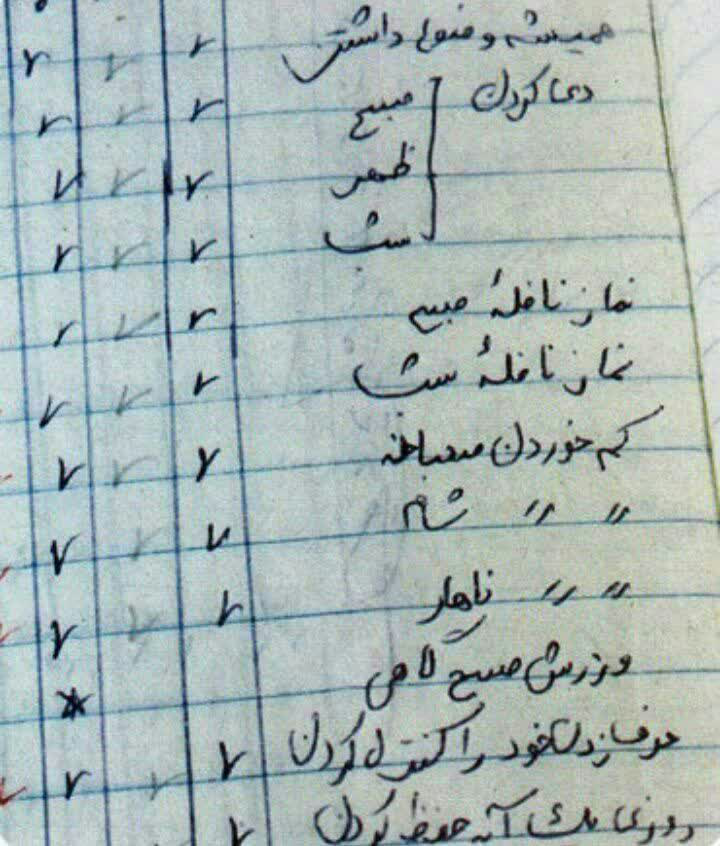 همیشه وضو داشتن
دعا کردن صبح
ظهر
شب
نماز نافلهٔ صبح
نماز نافلهٔ شب
کم خوردن صبحانه
〃 〃 شام
〃 〃 ناهار
ورزش صبحگاهی
حرف زدن خود را کنترل کردن
روزی یک آیه حفظ کردن